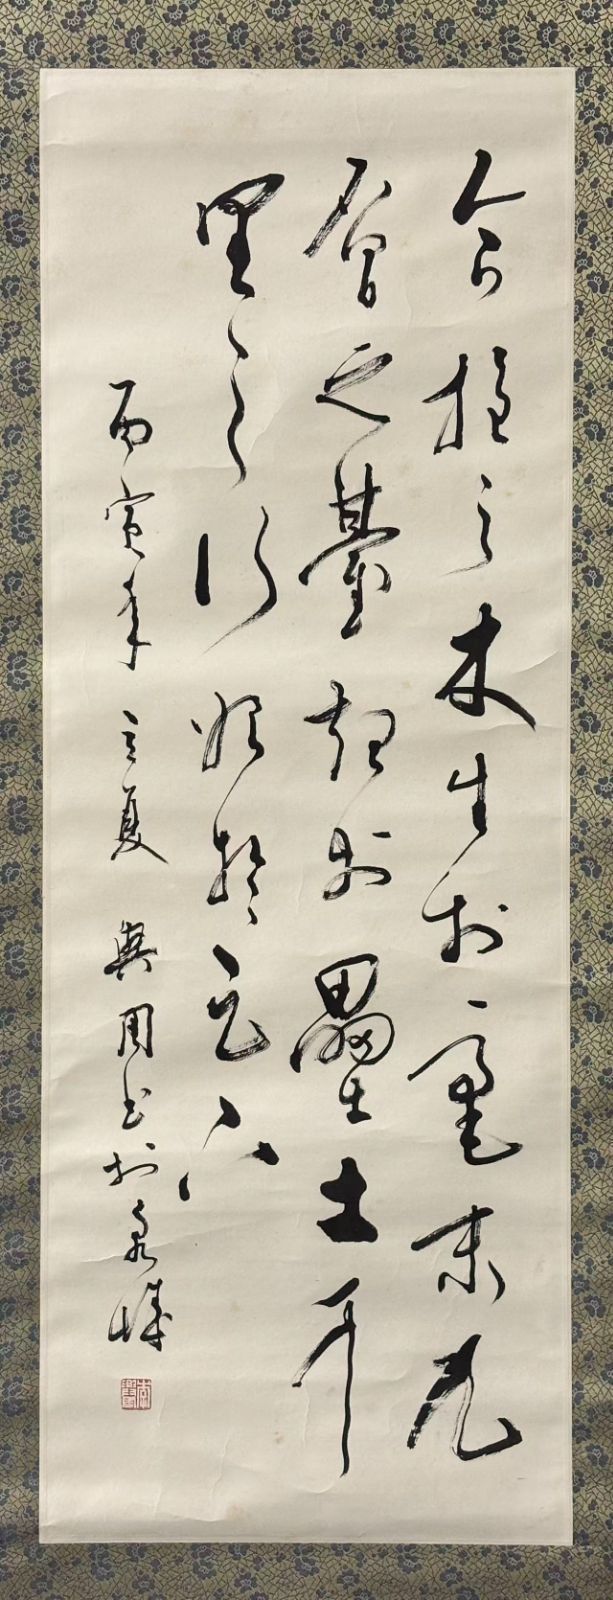 合抱之木生於毫末九
層之臺起於壘土千
里之行始於足下
丙寅年立夏 興周书於泉城